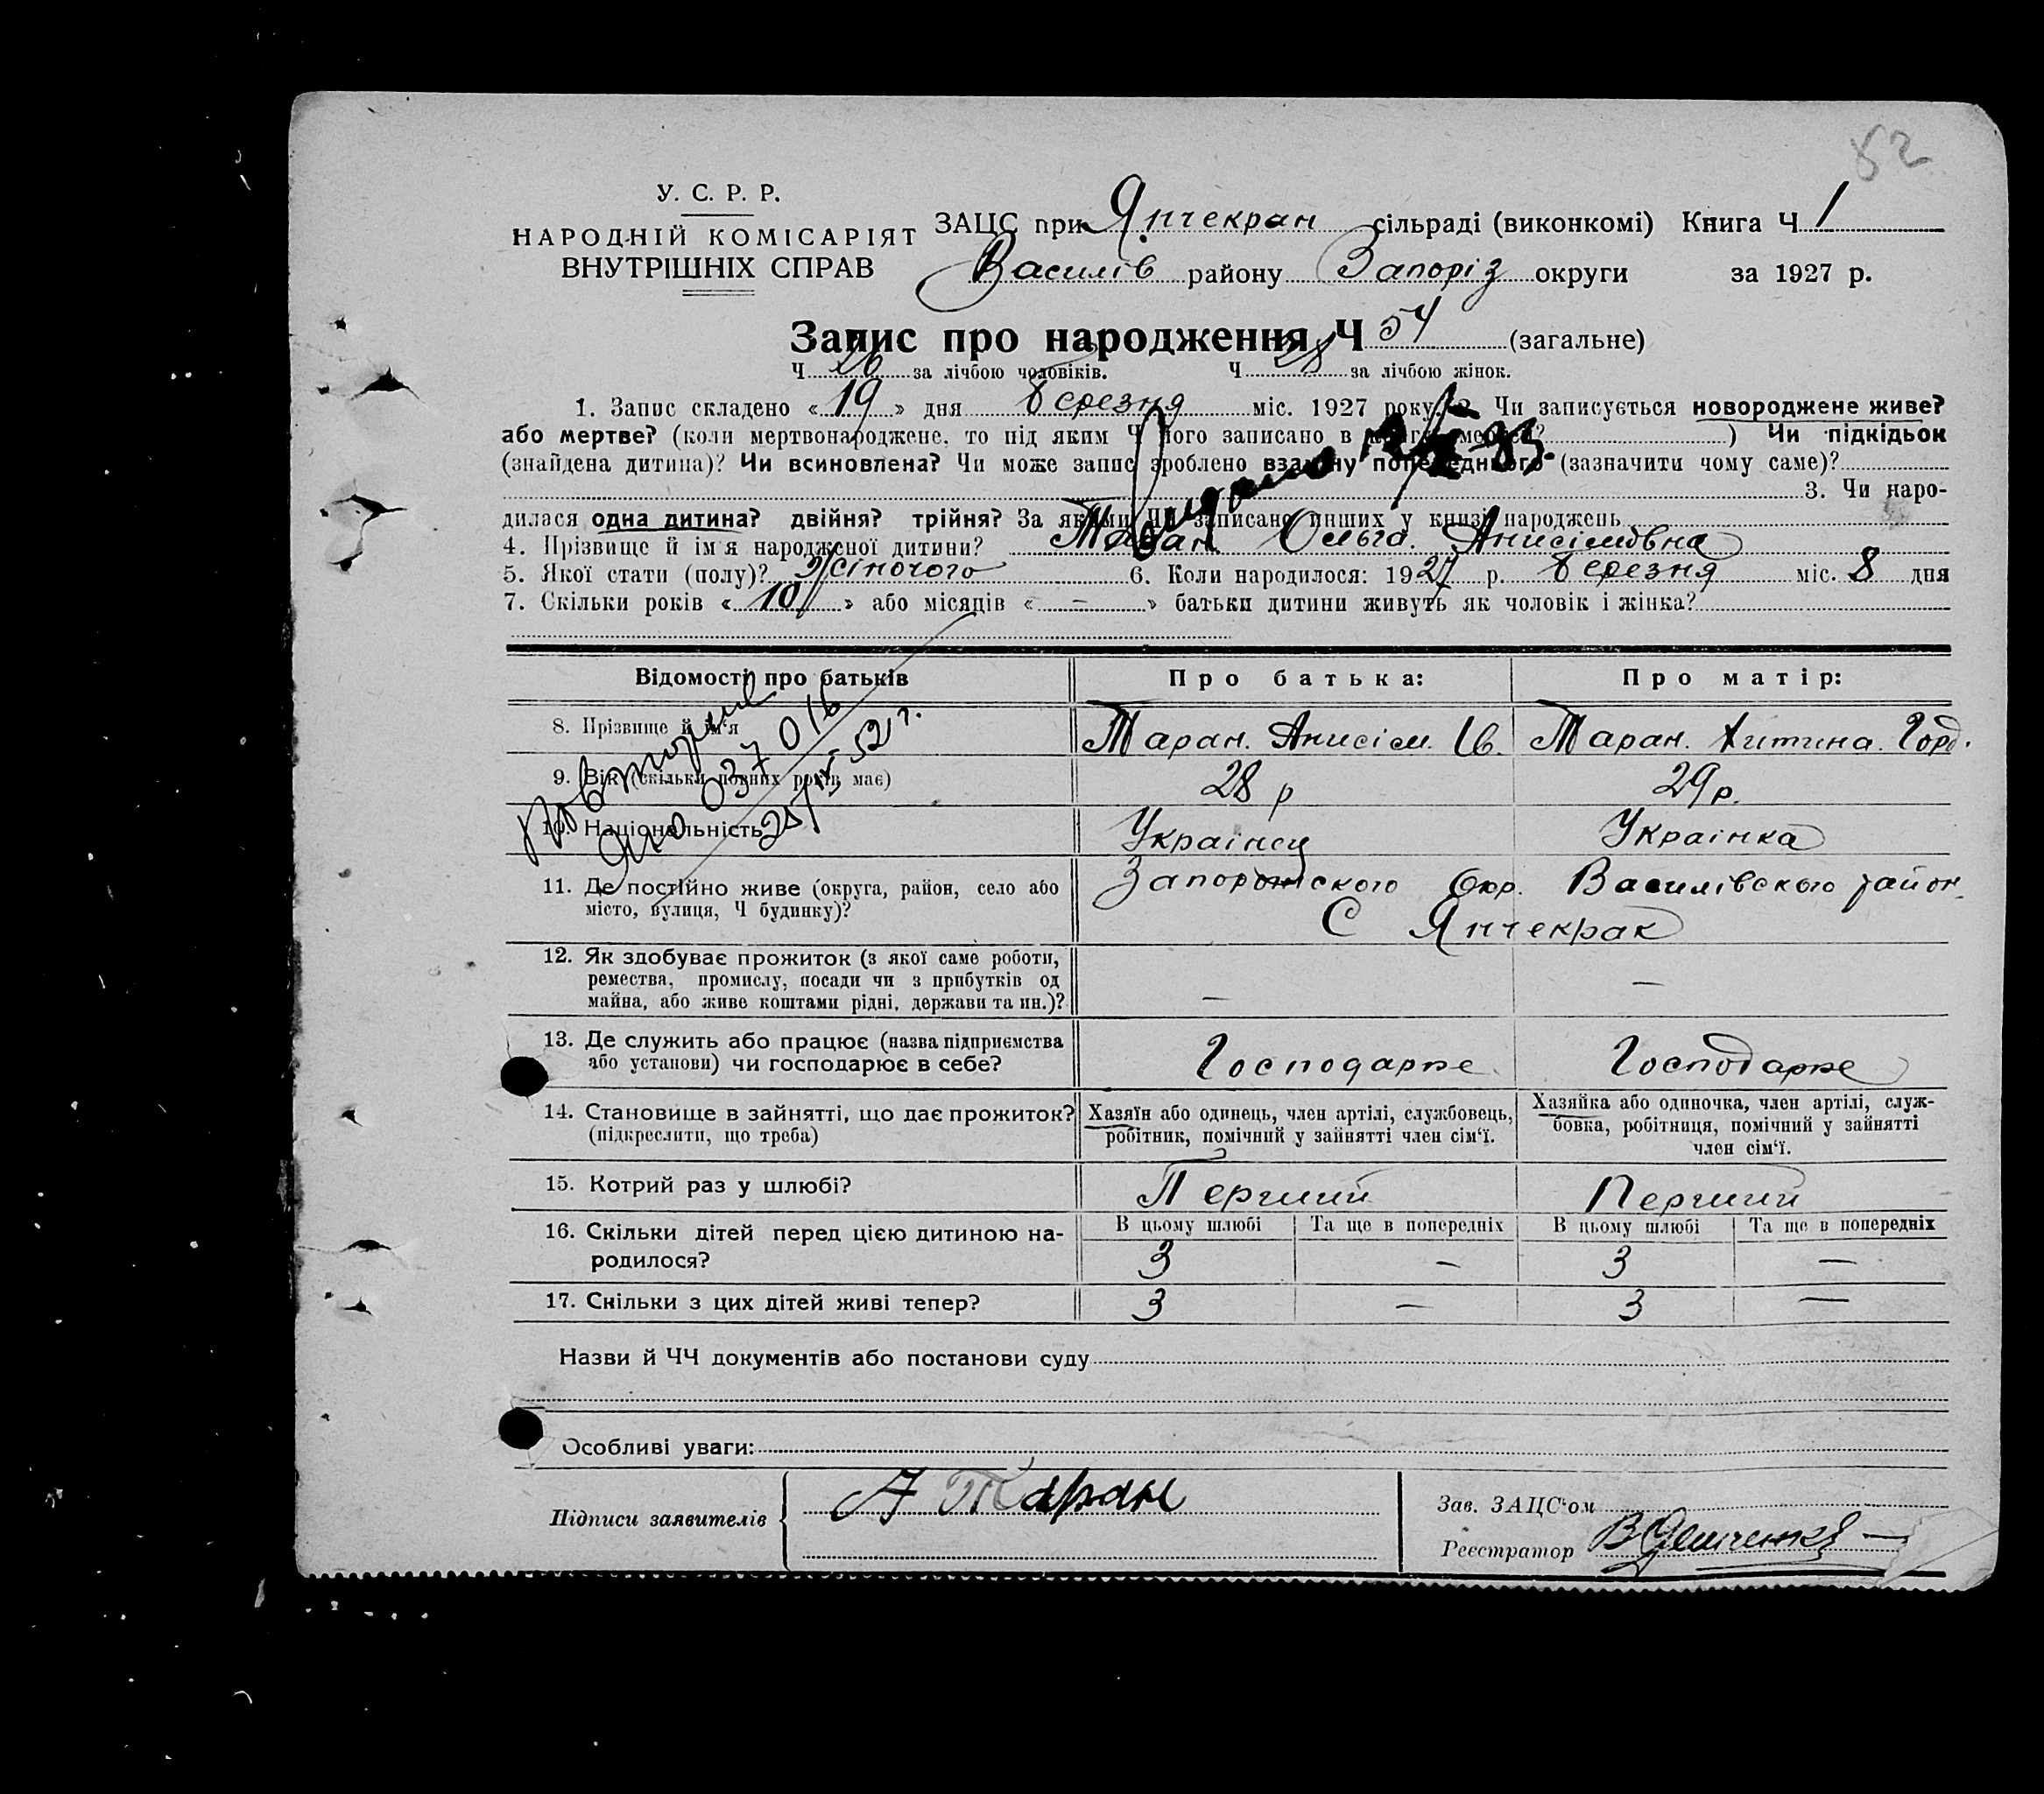 52
У. С. Р. Р.
НАРОДНІЙ КОМІСАРІЯТ
ВНУТРІШНІХ СПРАВ
ЗАЦС при Янчекран сільраді (виконкомі) Книга Ч 1
Василів району Запоріз округи за 1927 р.
Запис про народження Ч 54 (загальне)
Ч 26 за лічбою чоловіків. Ч 28 за лічбою жінок.
1. Запис складено « 19 » дня березня міс. 1927 року. 2. Чи записується новороджене живе?
або мертве? (коли мертвонароджене, то під яким Ч його записано в книгу мерців? ) Чи підкідьок
(знайдена дитина)? Чи всиновлена? Чи може запис зроблено взаміну попереднього (зазначити чому саме)?
3. Чи наро-
дилася одна дитина? двійня? трійня? За якими ЧЧ записано инших у книзі народжень
4. Прізвище й ім'я народженої дитини? Таран Ольга. Анисімовна
5. Якої стати (полу)? жіночого 6. Коли народилося: 1927 р. березня міс. 8 дня
7. Скільки років « 10 » або місяців « - » батьки дитини живуть як чоловік і жінка?
Відомості про батьків Про батька: Про матір:
8. Прізвище й ім'я Таран. Анисім. Ів. Таран. Хитина. Горд.
9. Вік (скільки повних років має) 28 р 29 р.
10. Національність Українец Українка
11. Де постійно живе (округа, район, село або Запоріжського Окр. Василівського район.
місто, вулиця, Ч будинку)? С Янчекрак
12. Як здобуває прожиток (з якої саме роботи,
ремества, промислу, посади чи з прибутків од
майна, або живе коштами рідні, держави та ин.)? — —
13. Де служить або працює (назва підприємства
або установи) чи господарює в себе? Господарює Господарює
14. Становище в зайнятті, що дає прожиток? Хазяїн або одинець, член артілі, службовець, Хазяйка або одиночка, член артілі, служ-
(підкреслити, що треба) робітник, помічний у зайнятті член сім'ї. бовка, робітниця, помічний у зайнятті
член сім'ї.
15. Котрий раз у шлюбі? Перший Перший
16. Скільки дітей перед цією дитиною на- В цьому шлюбі Та ще в попередніх В цьому шлюбі Та ще в попередніх
родилося? 3 — 3 —
17. Скільки з цих дітей живі тепер? 3 — 3 —
Назви й ЧЧ документів або постанови суду
Особливі уваги:
Підписи заявителів А Таран
Зав. ЗАЦС'ом
Реєстратор